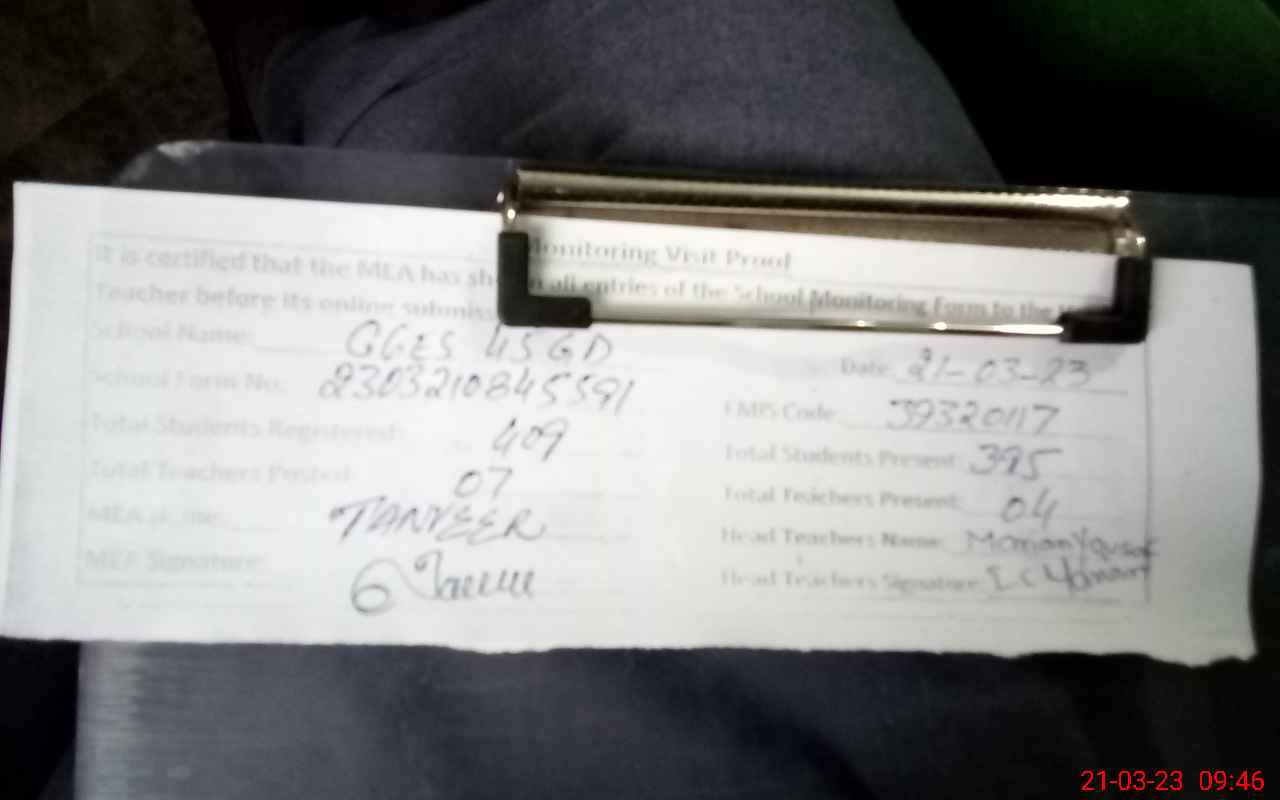 Monitoring Visit Proof
It is certified that the MEA has all entries of the School Monitoring Form to the
Teacher before its online
School Name: GGES 45GD Date 21-03-23
School Form No: 2303210845591 EMIS Code 39320117
Total Students Registered: 409 Total Students Present: 395
Total Teachers Posted: 07 Total Teachers Present: 04
MEA TANVEER Head Teachers Name:
Signature: Head Teachers Signature:
21-03-23 09:46